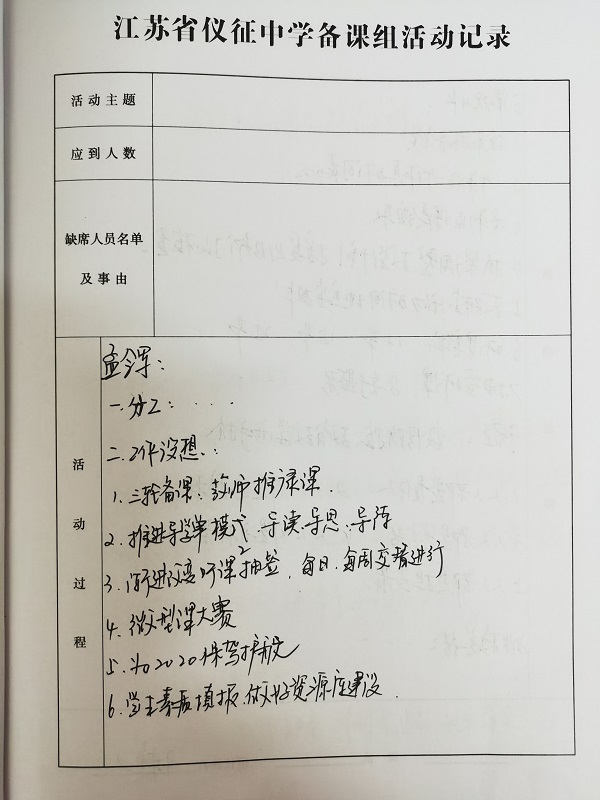 江苏省仪征中学备课组活动记录
活动主题
应到人数
缺席人员名单
及事由
活动过程
孟令军：
一.分工：....
二.工作设想：
1.三轮备课、教师推录课.
2.推进导学单模式 导读、导思、导练
3.渐进改变听课抽签，每日、每周交替进行
4.微型课大赛
5.为2020保驾护航
6.学生素质填报.做好资源库建设.